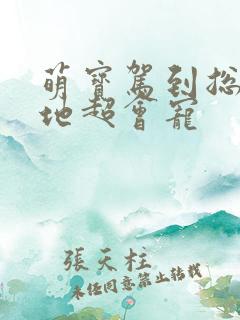 萌寶駕到總
地超會寵
張天柱
未经同意禁止转载